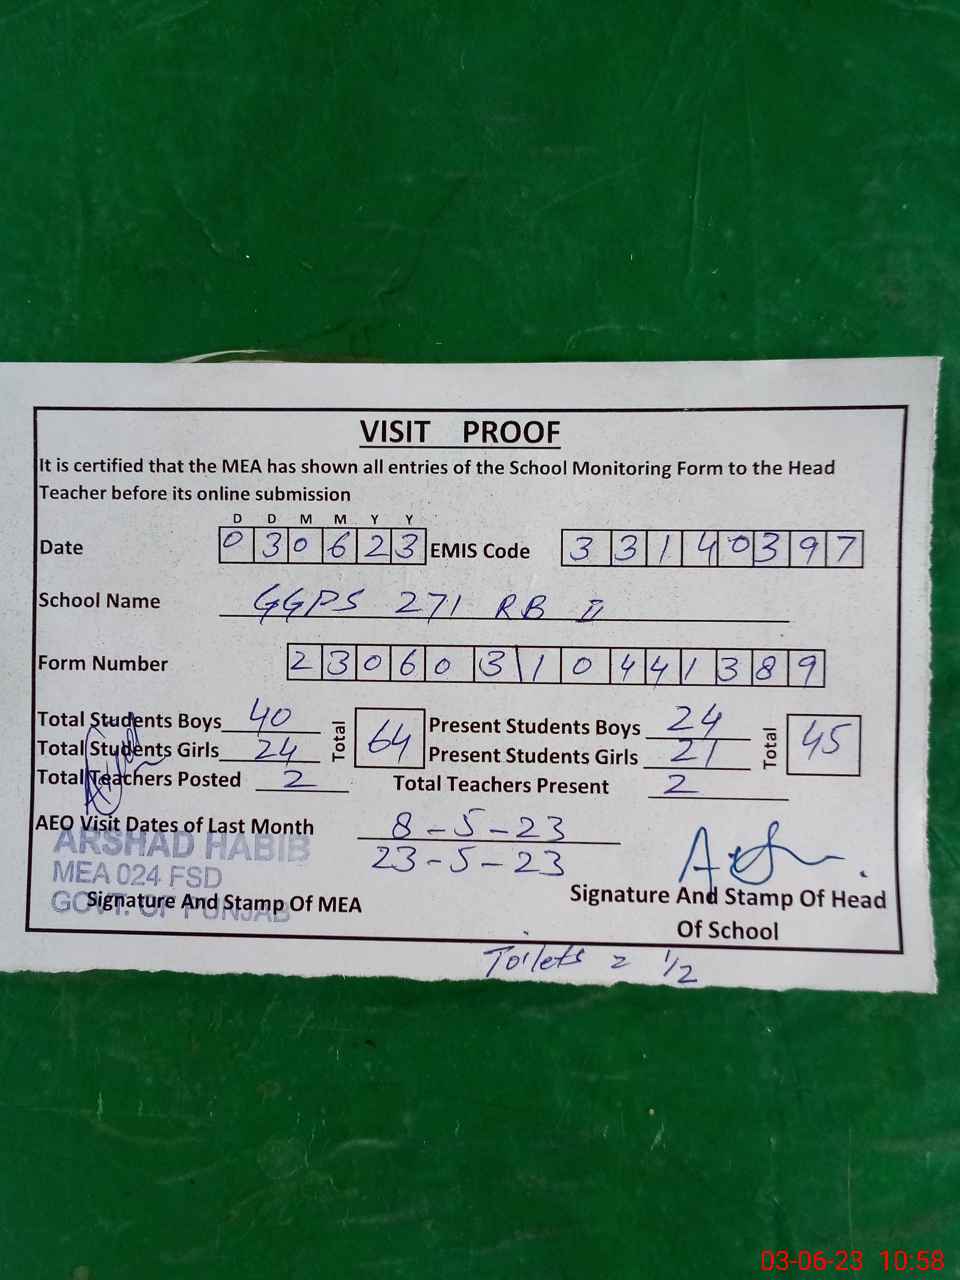 VISIT PROOF
It is certified that the MEA has shown all entries of the School Monitoring Form to the Head
Teacher before its online submission
D D M M Y Y
Date 0 3 0 6 2 3 EMIS Code 3 3 1 4 0 3 9 7
School Name GGPS 271 RB II
Form Number 2 3 0 6 0 3 1 0 4 4 1 3 8 9
Total Students Boys 40 Total 64 Present Students Boys 24 Total 45
Total Students Girls 24 Present Students Girls 21
Total Teachers Posted 2 Total Teachers Present 2
AEO Visit Dates of Last Month 8-5-23
23-5-23
ARSHAD HABIB
MEA 024 FSD
GOVT. OF PUNJAB
Signature And Stamp Of MEA
Signature And Stamp Of Head
Of School
Toilets = 1/2
03-06-23 10:58